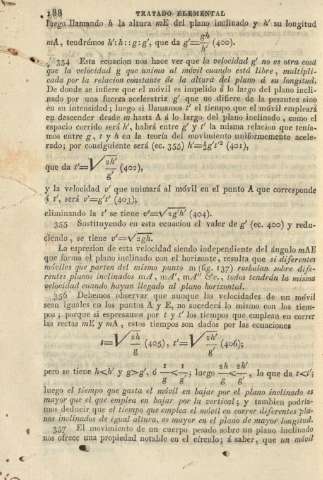 188 TRATADO ELEMENTAL
luego llamando h la altura mE del plano inclinado y h' su longitud
mA, tendrémos h':h::g:g', que da g'=gh/h' (400).
354 Esta ecuacion nos hace ver que la velocidad g' no es otra cosa
que la velocidad g que anima al móvil cuando está libre, multipli-
cada por la relacion constante de la altura del plano á su longitud.
De donde se infiere que el móvil es impelido á lo largo del plano incli-
nado por una fuerza aceleratriz g' que no difiere de la pesantez sino
en su intensidad; luego si llamamos t' el tiempo que el móvil empleará
en descender desde m hasta A á lo largo del plano inclinado, como el
espacio corrido será h', habrá entre g' y t' la misma relacion que tenía-
mos entre g, t y h en la teoría del movimiento uniformemente acele-
rado; por consiguiente será (ec. 355) h'=½g't'² (401),
que da t'=√2h'/g' (402),
y la velocidad v' que animará al móvil en el punto A que corresponde
á t', será v'=g't' (403);
eliminando la t' se tiene v'=√2g'h' (404).
355 Sustituyendo en esta ecuacion el valor de g' (ec. 400) y redu-
ciendo, se tiene v'=√2gh.
La espresion de esta velocidad siendo independiente del ángulo mAE
que forma el plano inclinado con el horizonte, resulta que si diferentes
móviles que parten del mismo punto m (fig. 137) resbalan sobre dife-
rentes planos inclinados mA, mA', mA'' &c., todos tendrán la misma
velocidad cuando hayan llegado al plano horizontal.
356 Debemos observar que aunque las velocidades de un móvil
sean iguales en los puntos A y E, no sucederá lo mismo con los tiem-
pos; porque si espresamos por t y t' los tiempos que emplea en correr
las rectas mE y mA, estos tiempos son dados por las ecuaciones
t=√2h/g (405), t'=√2h'/g' (406);
pero se tiene h<h' y g>g', ó 1/g<1/g', luego 2h/g<2h'/g', lo que da t<t';
luego el tiempo que gasta el móvil en bajar por el plano inclinado es
mayor que el que emplea en bajar por la vertical; y tambien podría-
mos deducir que el tiempo que emplea el móvil en correr diferentes pla-
nos inclinados de igual altura, es mayor en el plano de mayor longitud.
357 El movimiento de un cuerpo pesado sobre un plano inclinado
nos ofrece una propiedad notable en el círculo; á saber, que un móvil